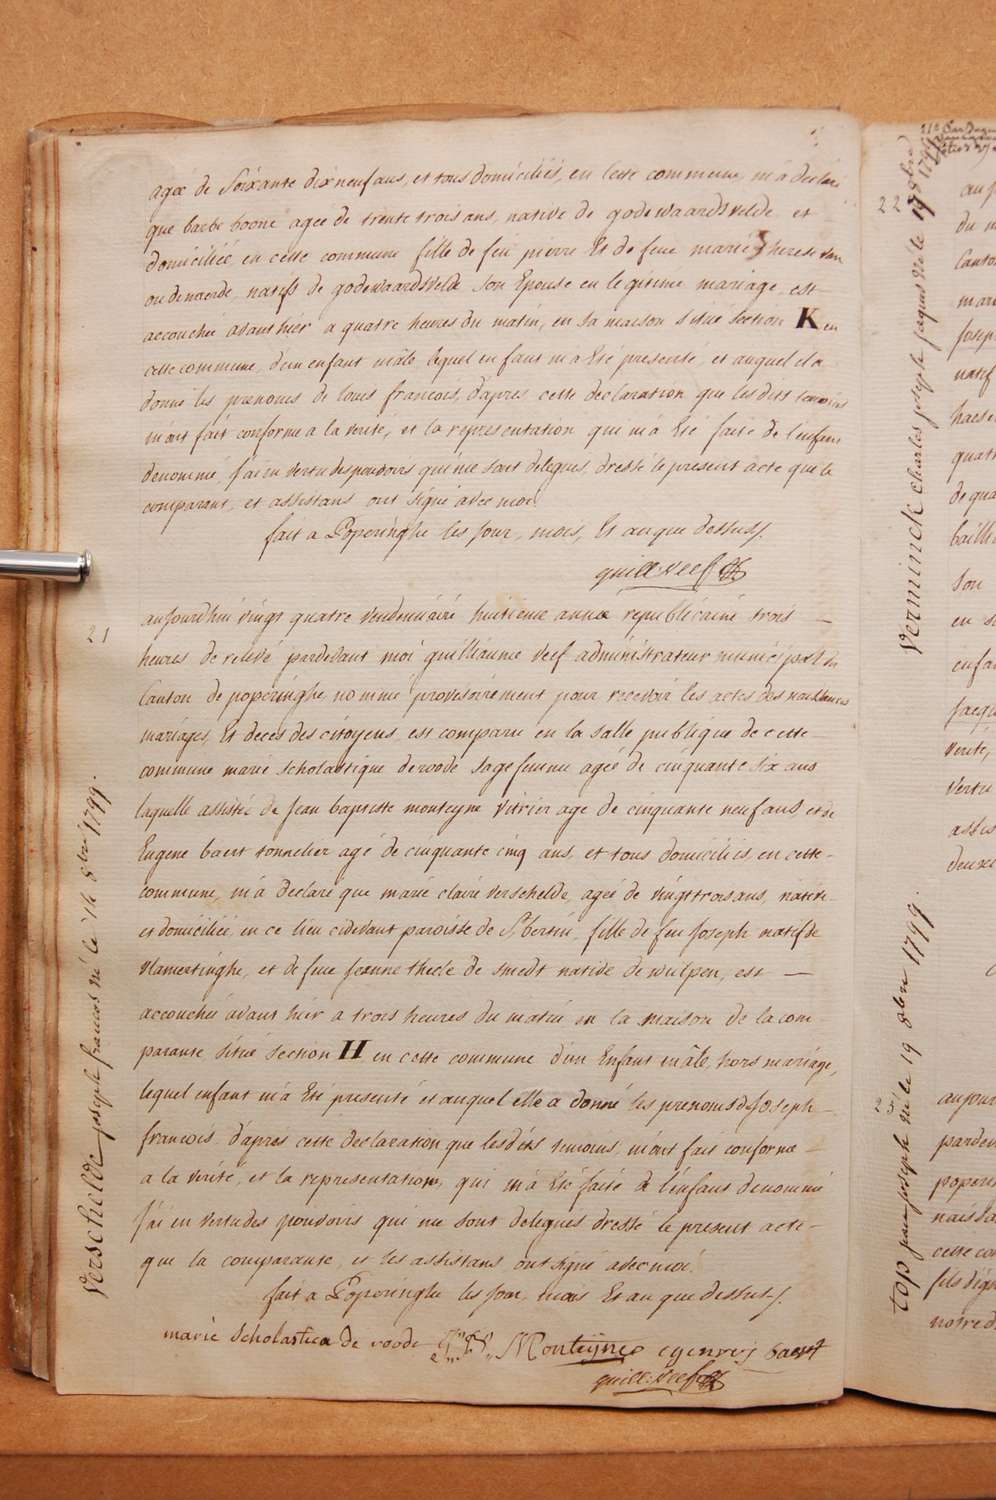 agée de soixante dix neuf ans, et tous domiciliés, en cette commune, m'a declaré
que barbe boone agée de trente trois ans, native de godewaardsvelde et
domiciliée en cette commune fille de feu pierre Et de feue marie therese van
oudenweerde, natifs de godewaardsvelde son Epouse en legitime mariage, est
accouchée avant hier a quatre heures du matin, en sa maison située section K en
cette commune, d'un enfant mâle lequel enfant m'a Eté presenté, et auquel il a
donné les prenoms de louis francois, d'apres cette declaration que les dits temoins
m'ont fait conforme a la verité, et la representation qui m'a Eté faite de l'enfant
denommé, j'ai en vertu des pouvoirs qui me sont delegués, dressé le present acte que le
comparant, et assistans ont signé avec moi
fait a Poperinghe les jour, mois, Et an que dessus /.
guill: Neef
21
aujourdhui vingt quatre vendemiaire huitieme année republicaine trois —
heures de relevé pardevant moi guilliaume neef administrateur municipal du
Canton de poperinghe nommé provisoirement pour recevoir les actes des naissances
mariages, Et deces des citoyens, est comparu en la salle publique de cette
commune marie scholastique deroode sagefemme agée de cinquante six ans
laquelle assistée de Jean baptiste monteyne vitrier age de cinquante neuf ans, et de
Eugene baert tonnelier agé de cinquante cinq ans, et tous domiciliés, en cette -
commune, m'a declaré que marie claire verschelde, agée de vingt trois ans, native
et domiciliée, en ce lieu cidevant paroisse de St bertin, fille de feu Joseph natif de
vlamertinghe, et de feue Jeanne thecle de smedt native de wulpen, est —
accouchée avant hier a trois heures du matin en la maison de la com
parante, située section H en cette commune d'un Enfant mâle, hors mariage,
lequel enfant m'a Eté presenté et auquel elle a donné les prenoms de Joseph -
francois, d'apres cette declaration que les dits temoins, m'ont fait conforme -
a la verité, et la representation, qui m'a Eté faite de l'enfant denommé
j'ai en vertu des pouvoirs qui me sont delegués dressé le present acte -
que la comparante, et les assistans, ont signé avec moi.
fait a Poperinghe les jour, mois Et an que dessus /.
marie scholastica de roode J: B: Monteijne eugenius baert
guill: Neef
verschelde joseph francois né le 14 8bre 1799.
22
verminck charles joseph jaques né le 19 8bre 1799
top jean joseph né le 19 8bre 1799.
23
du m
canton
mari
joseph
natif
haese
quatr
de qua
bailli
son
en s
enfa
jacqu
verité,
vertu
assis
deux
aujour
pardev
poperi
naissa
cette co
fils d
notre d